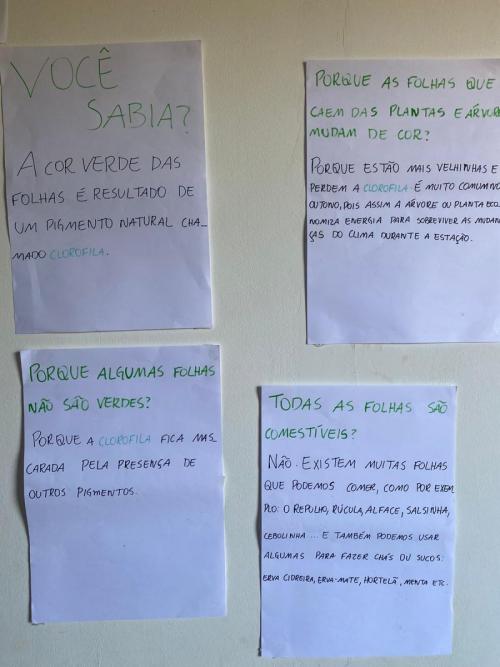 VOCÊ
SABIA?
A COR VERDE DAS
FOLHAS É RESULTADO DE
UM PIGMENTO NATURAL CHA_
MADO CLOROFILA.
PORQUE AS FOLHAS QUE
CAEM DAS PLANTAS E ÁRVORE
MUDAM DE COR?
PORQUE ESTÃO MAIS VELHINHAS E
PERDEM A CLOROFILA. É MUITO COMUM NO
OUTONO, POIS ASSIM A ÁRVORE OU PLANTA ECO_
NOMIZA ENERGIA PARA SOBREVIVER AS MUDAN
ÇAS DO CLIMA DURANTE A ESTAÇÃO.
PORQUE ALGUMAS FOLHAS
NÃO SÃO VERDES?
PORQUE A CLOROFILA FICA MAS_
CARADA PELA PRESENÇA DE
OUTROS PIGMENTOS.
TODAS AS FOLHAS SÃO
COMESTÍVEIS?
NÃO. EXISTEM MUITAS FOLHAS
QUE PODEMOS COMER, COMO POR EXEM_
PLO: O REPOLHO, RÚCULA, ALFACE, SALSINHA,
CEBOLINHA ... E TAMBÉM PODEMOS USAR
ALGUMAS PARA FAZER CHÁS OU SUCOS:
ERVA CIDREIRA, ERVA-MATE, HORTELÃ, MENTA ETC.